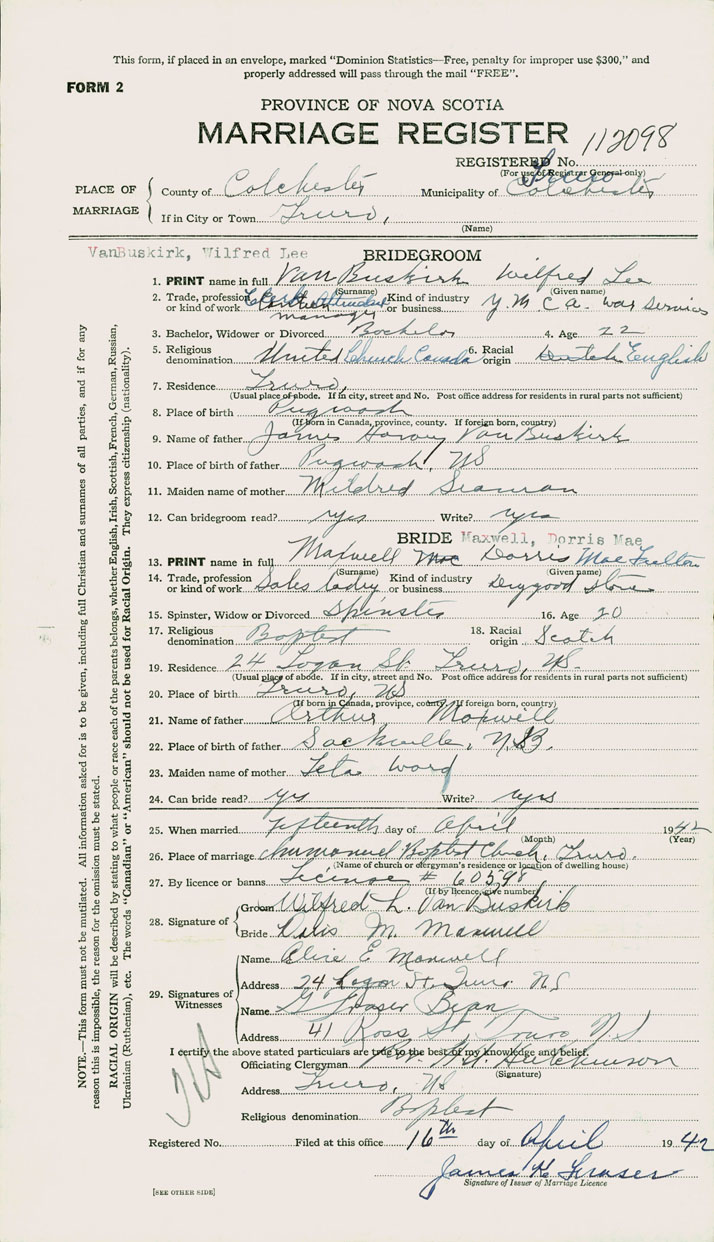 This form, if placed in an envelope, marked "Dominion Statistics—Free, penalty for improper use $300," and
properly addressed will pass through the mail "FREE".
FORM 2
PROVINCE OF NOVA SCOTIA
MARRIAGE REGISTER
REGISTERED No. 112098
(For use of Registrar General only)
PLACE OF MARRIAGE
County of Colchester Municipality of Truro Colchester
If in City or Town Truro,
(Name)
VanBuskirk, Wilfred Lee BRIDEGROOM
1. PRINT name in full Van Buskirk Wilfred Lee
(Surname) (Given name)
2. Trade, profession or kind of work Clerk Attendant manager Kind of industry or business Y.M.C.A. war services
3. Bachelor, Widower or Divorced Bachelor 4. Age 22
5. Religious denomination United Church Canada 6. Racial origin Dutch English
7. Residence Truro,
(Usual place of abode. If in city, street and No. Post office address for residents in rural parts not sufficient)
8. Place of birth Pugwash
(If born in Canada, province, county. If foreign born, country)
9. Name of father James Harvey Van Buskirk
10. Place of birth of father Pugwash, NS
11. Maiden name of mother Mildred Seaman
12. Can bridegroom read? yes Write? yes
BRIDE Maxwell, Dorris Mae
13. PRINT name in full Maxwell Mae Dorris Mae Fulton
(Surname) (Given name)
14. Trade, profession or kind of work Sales lady Kind of industry or business Drygood Store
15. Spinster, Widow or Divorced Spinster 16. Age 20
17. Religious denomination Baptist 18. Racial origin Scotch
19. Residence 24 Logan St. Truro, NS.
(Usual place of abode. If in city, street and No. Post office address for residents in rural parts not sufficient)
20. Place of birth Truro, NS
(If born in Canada, province, county. If foreign born, country)
21. Name of father Arthur Maxwell
22. Place of birth of father Sackville, N.B.
23. Maiden name of mother Leta Ward
24. Can bride read? yes Write? yes
25. When married fifteenth day of April 1942
(Month) (Year)
26. Place of marriage Immanuel Baptist Church, Truro.
(Name of church or clergyman's residence or location of dwelling house)
27. By licence or banns License # 60598
(If by licence, give number)
28. Signature of
Groom Wilfred L. Van Buskirk
Bride Doris M. Maxwell
29. Signatures of Witnesses
Name Alice E Maxwell
Address 24 Logan St. Truro NS
Name G Fraser Bean
Address 41 Ross St. Truro, N.S.
I certify the above stated particulars are true to the best of my knowledge and belief.
Officiating Clergyman Rev. Hutchinson
(Signature)
Address Truro, NS
Religious denomination Baptist
Registered No. Filed at this office 16th day of April 1942
James H Fraser
Signature of Issuer of Marriage Licence
[SEE OTHER SIDE]
NOTE.—This form must not be mutilated. All information asked for is to be given, including full Christian and surnames of all parties, and if for any
reason this is impossible, the reason for the omission must be stated.
RACIAL ORIGIN will be described by stating to what people or race each of the parents belongs, whether English, Irish, Scottish, French, German, Russian,
Ukrainian (Ruthenian), etc. The words "Canadian" or "American" should not be used for Racial Origin. They express citizenship (nationality).